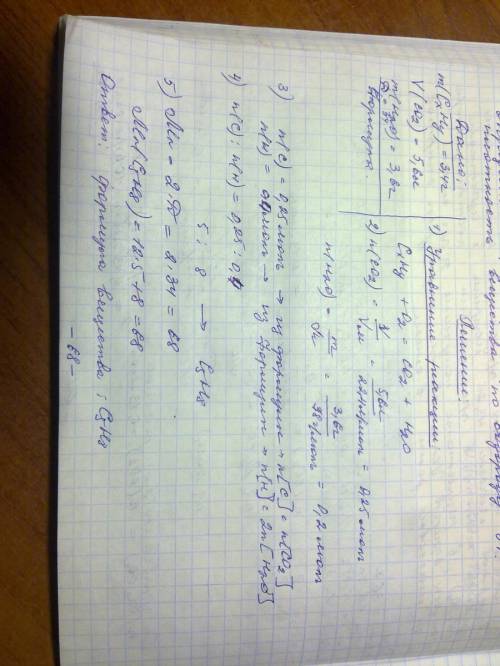 плотность вещества по водороду 34.
Дано:
m(CxHy) = 3,4г
V(CO2) = 5,6л
m(H2O) = 3,6г
D = 34
Формула
Решение
1) Уравнение реакции
CxHy + O2 = CO2 + H2O
2) n(CO2) = V/Vm = 5,6л/22,4л/моль = 0,25 моль
n(H2O) = m/M = 3,6г/18г/моль = 0,2 моль
3) n(C) = 0,25моль → из формулы → n[C] = n[CO2]
n(H) = 0,4моль → из формулы → n[H] = 2n[H2O]
4) n(C) : n(H) = 0,25 : 0,4
5 : 8 → C5H8
5) Mr = 2D = 2·34 = 68
Mr(C5H8) = 12·5+8 = 68
Ответ: формула вещества: C5H8
-68-